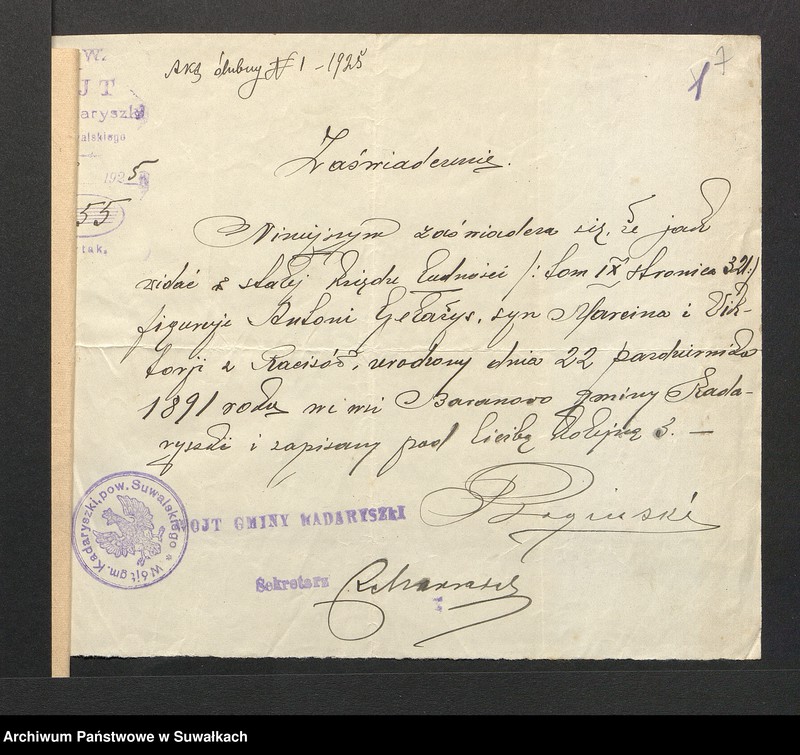 Akt ślubny № 1 – 1925
1 7
W.
JT
daryszki
walskiego
1925
55
tak.
Zaświadczenie.
Niniejszym zaświadcza się, że jak
widać z stałej księdze ludności /: tom IX stronica 321:/
figuruje Antoni Gełażys, syn Marcina i Wik-
torji z urodzony dnia 22 października
1891 roku we wsi Baranowo gminy Kada-
ryszki i zapisany pod liczbą kolejną 3. —
WÓJT GMINY KADARYSZKI
Wójt gm. Kadaryszki, pow. Suwalskiego *
Sekretarz
Archiwum Państwowe w Suwałkach